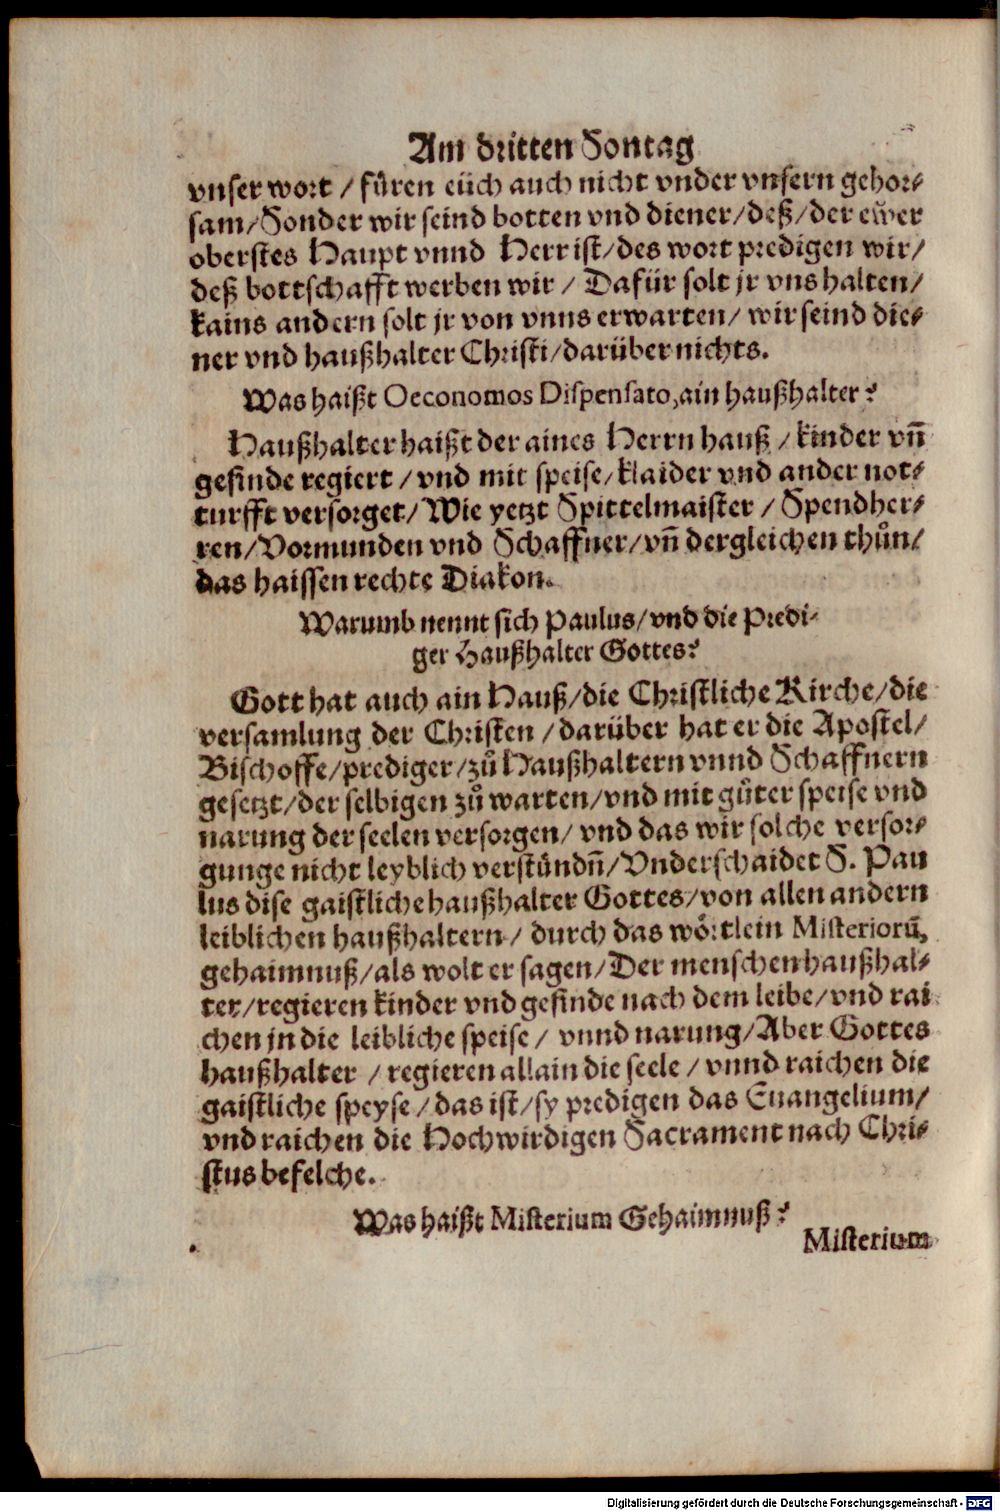 Am dritten Sontag
vnser wort / fůren eüch auch nicht vnder vnsern gehor⸗
sam/Sonder wir seind botten vnd diener/deß/der ewer
oberstes Haupt vnnd Herr ist/des wort predigen wir/
deß bottschafft werben wir / Dafür solt jr vns halten/
kains andern solt jr von vnns erwarten/ wir seind die⸗
ner vnd haußhalter Christi/darüber nichts.
Was haißt Oeconomos Dispensato,ain haußhalter?
Haußhalter haißt der aines Herrn hauß / kinder vñ
gesinde regiert / vnd mit speise/klaider vnd ander not⸗
turfft versorget/Wie yetzt Spittelmaister / Spendher⸗
ren/Vormunden vnd Schaffner/vñ dergleichen thůn/
das haissen rechte Diakon.
Warumb nennt sich Paulus/vnd die Predi⸗
ger Haußhalter Gottes?
Gott hat auch ain Hauß/die Christliche Kirche/die
versamlung der Christen / darüber hat er die Apostel/
Bischoffe/prediger/zů Haußhaltern vnnd Schaffnern
gesetzt/der selbigen zů warten/vnd mit gůter speise vnd
narung der seelen versorgen/ vnd das wir solche versor⸗
gunge nicht leyblich verstündñ/Vnderschaidet S. Pau
lus dise gaistliche haußhalter Gottes/von allen andern
leiblichen haußhaltern / durch das wörtlein Misteriorũ,
gehaimnuß/als wolt er sagen/Der menschen haußhal⸗
ter/regieren kinder vnd gesinde nach dem leibe/vnd rai
chen jn die leibliche speise / vnnd narung/Aber Gottes
haußhalter / regieren allain die seele / vnnd raichen die
gaistliche speyse / das ist/sy predigen das Euangelium/
vnd raichen die Hochwirdigen Sacrament nach Chri⸗
stus befelche.
Was haißt Misterium Gehaimnuß?
Misterium
Digitalisierung gefördert durch die Deutsche Forschungsgemeinschaft - DFG